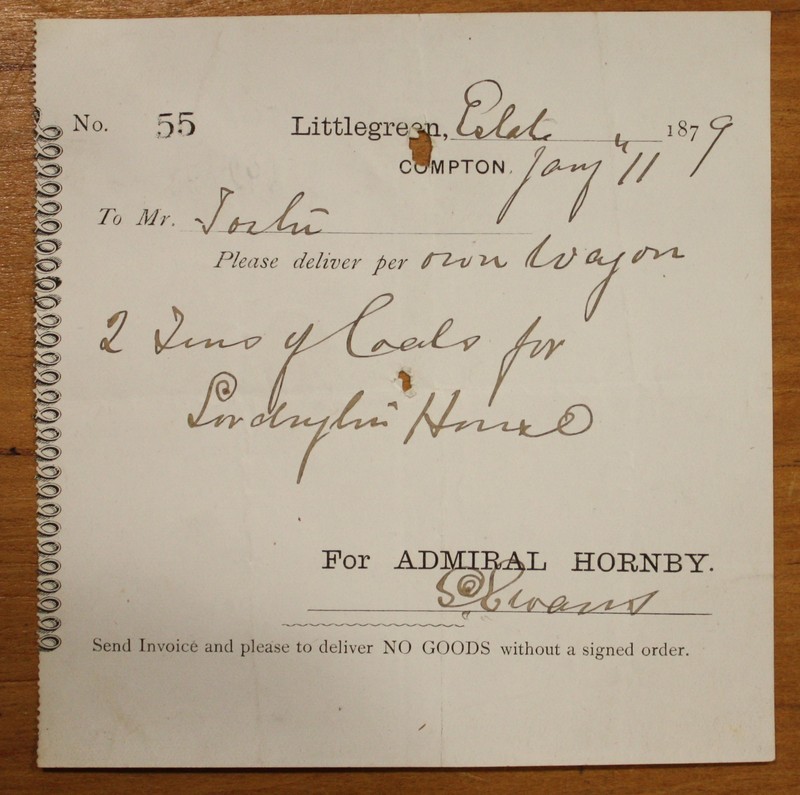 No. 55 Littlegreen, Estate 1879
COMPTON. Jany 11
To Mr.
Please deliver per own Wagon
2 Tons of Coals for
Lordington House
For ADMIRAL HORNBY.
Evans
Send Invoice and please to deliver NO GOODS without a signed order.